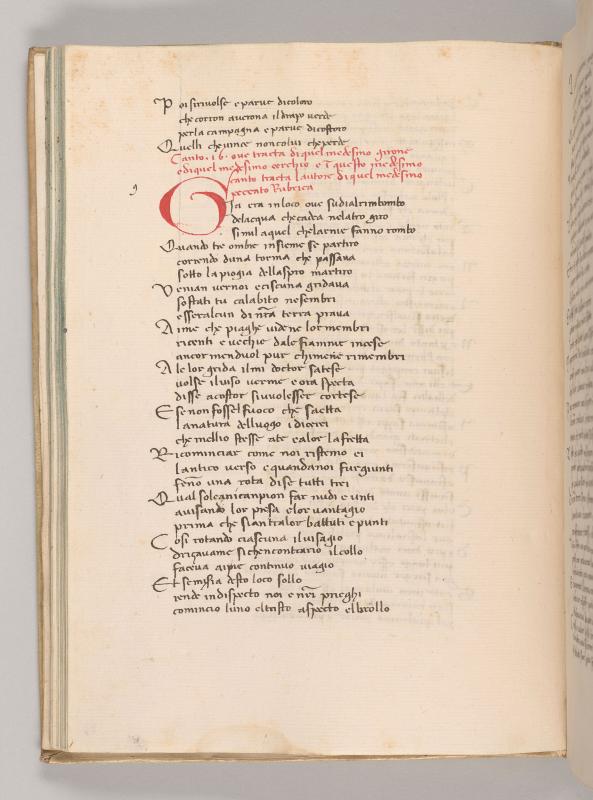 P oi si rivolse e parve di coloro
che corron a verona il drapo verde
per la campagna e parve di costoro
Quelli che vince non colui che perde
Canto .16. ove tracta di quel medesimo girone
e di quel medesimo cerchio e i questo medesimo
canto tracta lautore di quel medesimo
peccento Rubrica
G Ia era in loco ove sudial rimbombo
dellacqua che cadea nelatro giro
simil a quel chelarnie fanno rombo
Quando tre ombre insieme se partiro
correndo duna torma che passava
sotto la piogia dellaspro martiro
V enian ver noi e ciscuna gridava
sostati tu calabito ne sembri
esser alcun di nr̃a terra prava
A ime che piaghe videne lor membri
ricenti e vechie da le fiamme incese
ancor men duol pur chimene rimembri
A le lor grida il mi doctor satese
volse il viso verme e ora specta
disse a costor si vvol esser cortese
E se non fossel fuoco che saetta
la natura del luogo i dicerei
che mellio stesse a te ca lor la fretta
R icominciar come noi ristemo ei
lantico verso e quanda noi fur giunti
fenno una rota di se tutti trei
Qual soleani canpion far nudi e unti
avisando lor presa e lor vantagio
prima che sian tra lor battuti e punti
C osi rotando ciascuna il visagio
driçavame si chen contrario il collo
faceva ai pie continuo viagio
E t se misia desto loco sollo
rende in dispecto noi e nr̃i prieghi
comincio luno el tristo aspecto el brollo